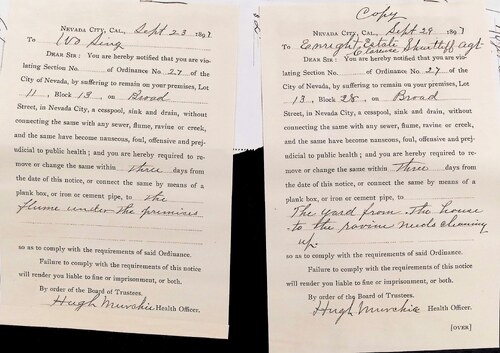 NEVADA CITY, CAL., Sept 23 1897
To Wo Sing
DEAR SIR: You are hereby notified that you are vio-
lating Section No. of Ordinance No. 27 of the
City of Nevada, by suffering to remain on your premises, Lot
11, Block 13, on Broad
Street, in Nevada City, a cesspool, sink and drain, without
connecting the same with any sewer, flume, ravine or creek,
and the same have become nauseous, foul, offensive and prej-
udicial to public health; and you are hereby required to re-
move or change the same within three days from
the date of this notice, or connect the same by means of a
plank box, or iron or cement pipe, to the
flume under the premises
so as to comply with the requirements of said Ordinance.
Failure to comply with the requirements of this notice
will render you liable to fine or imprisonment, or both.
By order of the Board of Trustees.
Hugh Murchie Health Officer.
Copy
NEVADA CITY, CAL., Sept 29 1897
To Enright Estate
Clarence Shurtleff agt
DEAR SIR: You are hereby notified that you are vio-
lating Section No. of Ordinance No. 27 of the
City of Nevada, by suffering to remain on your premises, Lot
13, Block 28, on Broad
Street, in Nevada City, a cesspool, sink and drain, without
connecting the same with any sewer, flume, ravine or creek,
and the same have become nauseous, foul, offensive and prej-
udicial to public health; and you are hereby required to re-
move or change the same within three days from
the date of this notice, or connect the same by means of a
plank box, or iron or cement pipe, to
The yard from the house
to the ravine needs cleaning
up.
so as to comply with the requirements of said Ordinance.
Failure to comply with the requirements of this notice
will render you liable to fine or imprisonment, or both.
By order of the Board of Trustees.
Hugh Murchie Health Officer.
[OVER]